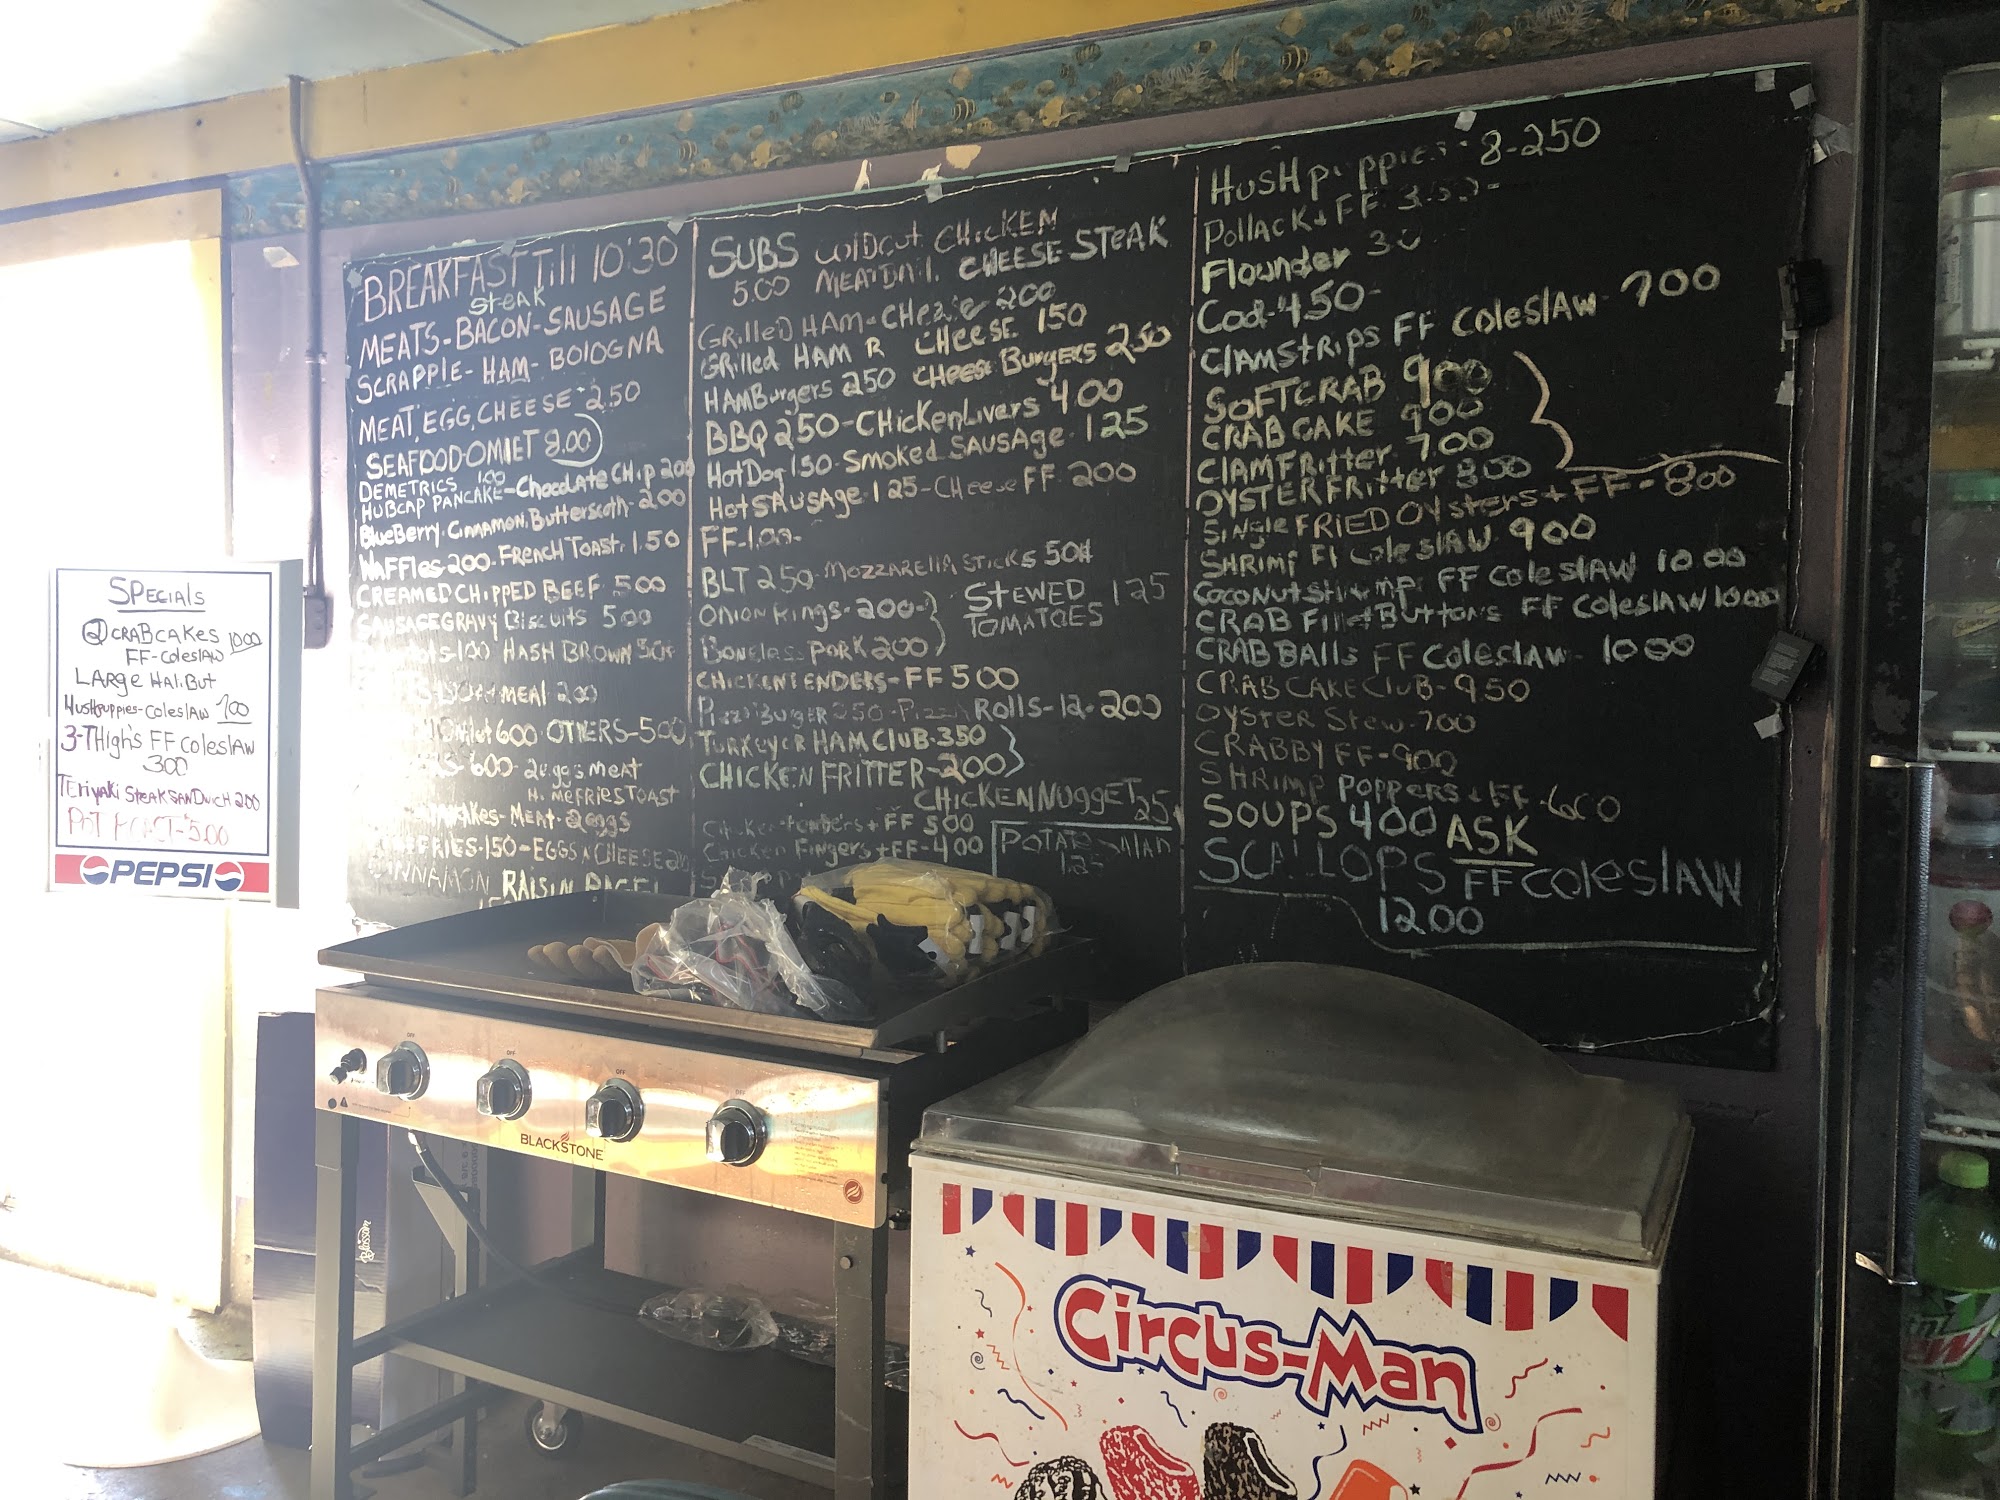 SPecials
② CRABCAKES 10.00
FF-ColeslAW
LARge HAliBUT
Hushpuppies-ColeslAW 700
3-THigh's FF ColeslAW
300
TERiyAKi STeAKSANDWicH 200
POT 500
PEPSI
BREAKFAST Till 10:30
STEAK
MEATS-BACON-SAUSAGE
SCRAPPlE-HAM-BOlOGNA
MEAT, EGG, CHEESE-250
SEAFOOD OMlET 8.00
DEMETRICS 100
HUBCAP PANCAKE-CHocolATe CHip 200
BlueBerry. CinnAmon. ButterscotH-200
WAFFles-200-FRENCH TOAST. 1.50
CREAMED CHIPPED BEEF 500
SAUSAGEGRAVY BiscUits 500
100 HASH BROWN 50¢
MEAl 200
600 OTHERS-500
600-2eggs MEAT
HoMeFRiesTOAST
MeAT-2eggs
FRIES-150-EGGS CHEESE
CINNAMON RAISIN BAGEl
SUBS COlDCUT CHiCKEN
5.00 MEATBAll CHEESE STEAK
GRilleD HAM-CHeese 200
GRilled HAM R CHEESE 150
HAMBurgers 250 CHeese BuRgERS 250
BBQ 250-CHickenLivers 400
HotDog 150-Smoked SAUSAge. 125
HotSAUSAge 125-CHeese FF 200
FF-1.00-
BLT 250-MOZZAREllA STicKS 50¢
ONioN RiNgs-200 STEWED 125
TOMATOES
Boneless PORK 200
CHiCKENTENDERS-FF 500
PizzABURGER 250-PizzA ROlls-12-200
TURKEY OR HAM CluB-350
CHICKEN FRITTER-200
CHICKEN NUGGET 25
CHicKen tenDers + FF 500
CHicKen Fingers + FF-400
POTATO
125
HusHpuppies 8-250
PollAcK + FF 350-
Flounder
Cod-450-
ClAMSTRips FF ColeslAW-700
SOFTCRAB 900
CRABCAKE 900
ClAMFRitter 7.00
OYSTERFRitter 800
Single FRiEDOysters + FF-800
SHRimp FF ColeslAW 900
CoconutSHrimp FF ColeslAW 10.00
CRAB FilletButtons FF ColeslAW 10.00
CRAB BAlls FF ColeslAW-1000
CRAB CAKEClUB-950
OYSTER STEW-700
CRABBY FF-900
SHRIMP POPPERS + FF-600
SOUPS 400 ASK
SCALLOPS FF ColeslAW
1200
OFF
OFF
OFF
BLACKSTONE
Blossom
Circus-Man